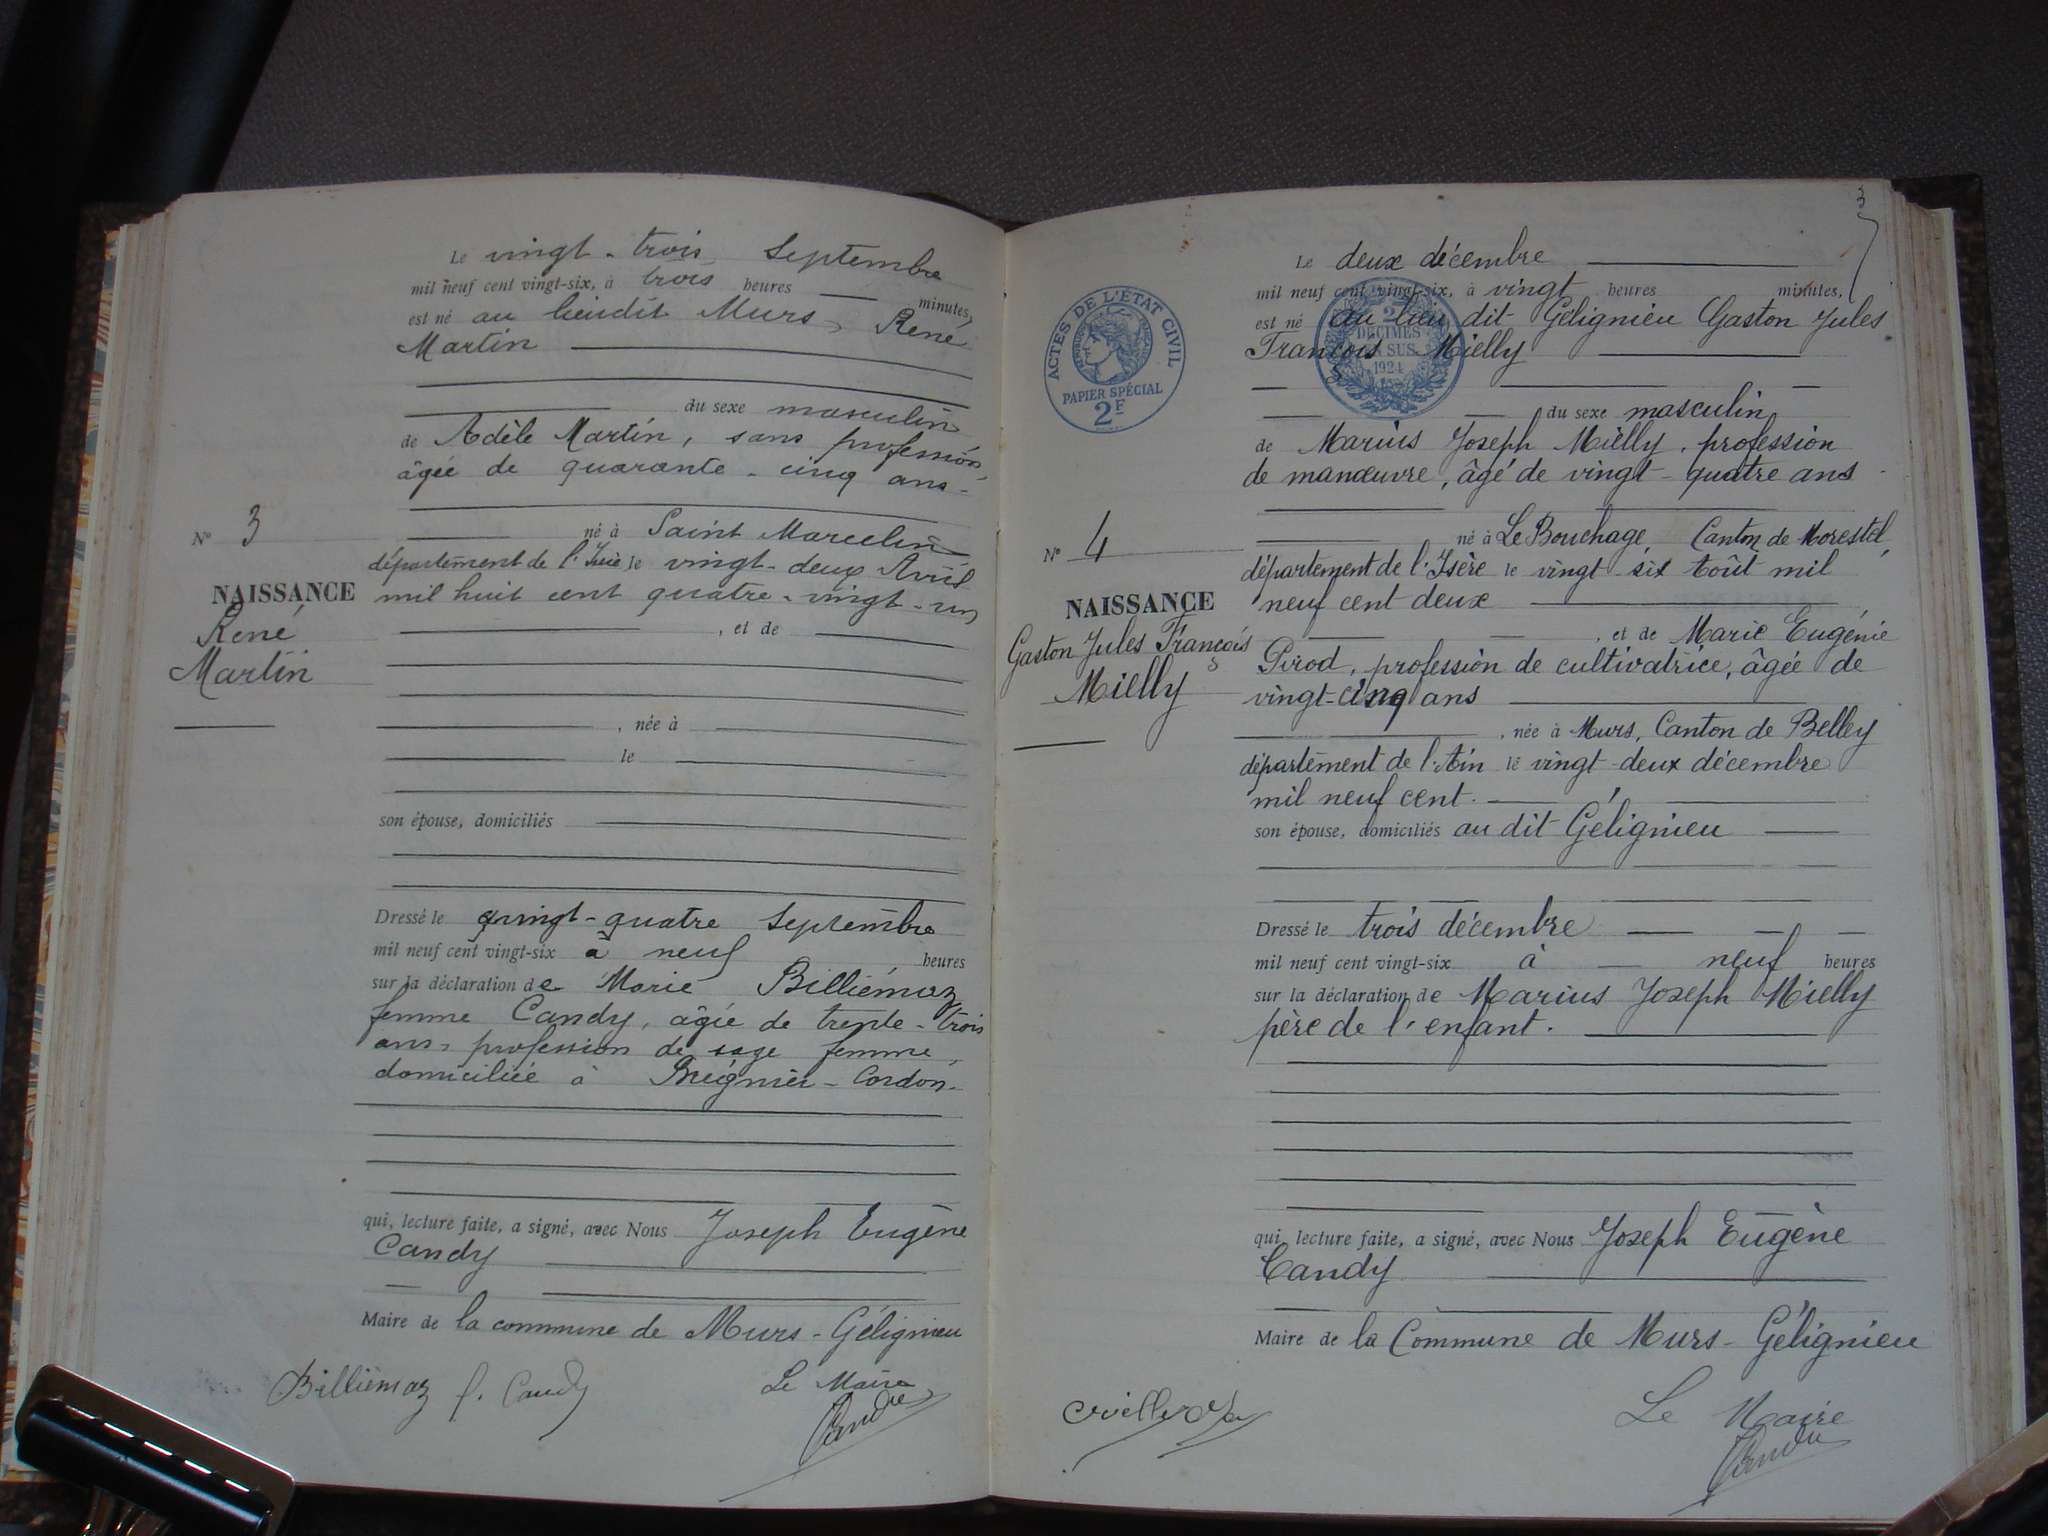 Le vingt-trois Septembre
mil neuf cent vingt-six, à trois heures minutes,
est né au lieudit Murs, René
Martin
du sexe masculin
de Adèle Martin, sans profession
âgée de quarante-cinq ans
né à Saint Marcelin
département de l'Isère le vingt-deux Avril
mil huit cent quatre-vingt-un
, et de
, née à
le
son épouse, domiciliés
Dressé le vingt-quatre Septembre
mil neuf cent vingt-six à neuf heures
sur la déclaration de Marie Billiémaz
femme Candy, âgée de trente-trois
ans, profession de sage femme,
domiciliée à Brégnier-Cordon.
qui, lecture faite, a signé, avec Nous Joseph Eugène
Candy
Maire de la commune de Murs-Gélignieu
Billiemaz f. Candy
Le Maire
Candy
N° 3
NAISSANCE
René
Martin
3
Le deux décembre
mil neuf cent vingt-six, à vingt heures minutes,
est né au lieu dit Gélignieu Gaston Jules
François Mielly
du sexe masculin
de Marius Joseph Mielly, profession
de manœuvre, âgé de vingt-quatre ans
né à Le Bouchage, Canton de Morestel,
département de l'Isère le vingt-six Août mil
neuf cent deux
, et de Marie Eugénie
Pirod, profession de cultivatrice, âgée de
vingt-cinq ans
, née à Murs, Canton de Belley
département de l'Ain le vingt-deux décembre
mil neuf cent.
son épouse, domiciliés au dit Gélignieu
Dressé le trois décembre
mil neuf cent vingt-six à neuf heures
sur la déclaration de Marius Joseph Mielly
père de l'enfant.
qui, lecture faite, a signé, avec Nous Joseph Eugène
Candy
Maire de la Commune de Murs-Gélignieu
Le Maire
Candy
N° 4
NAISSANCE
Gaston Jules François
Mielly
ACTES DE L'ÉTAT CIVIL
PAPIER SPÉCIAL
2F
2
DÉCIMES
EN SUS
1924